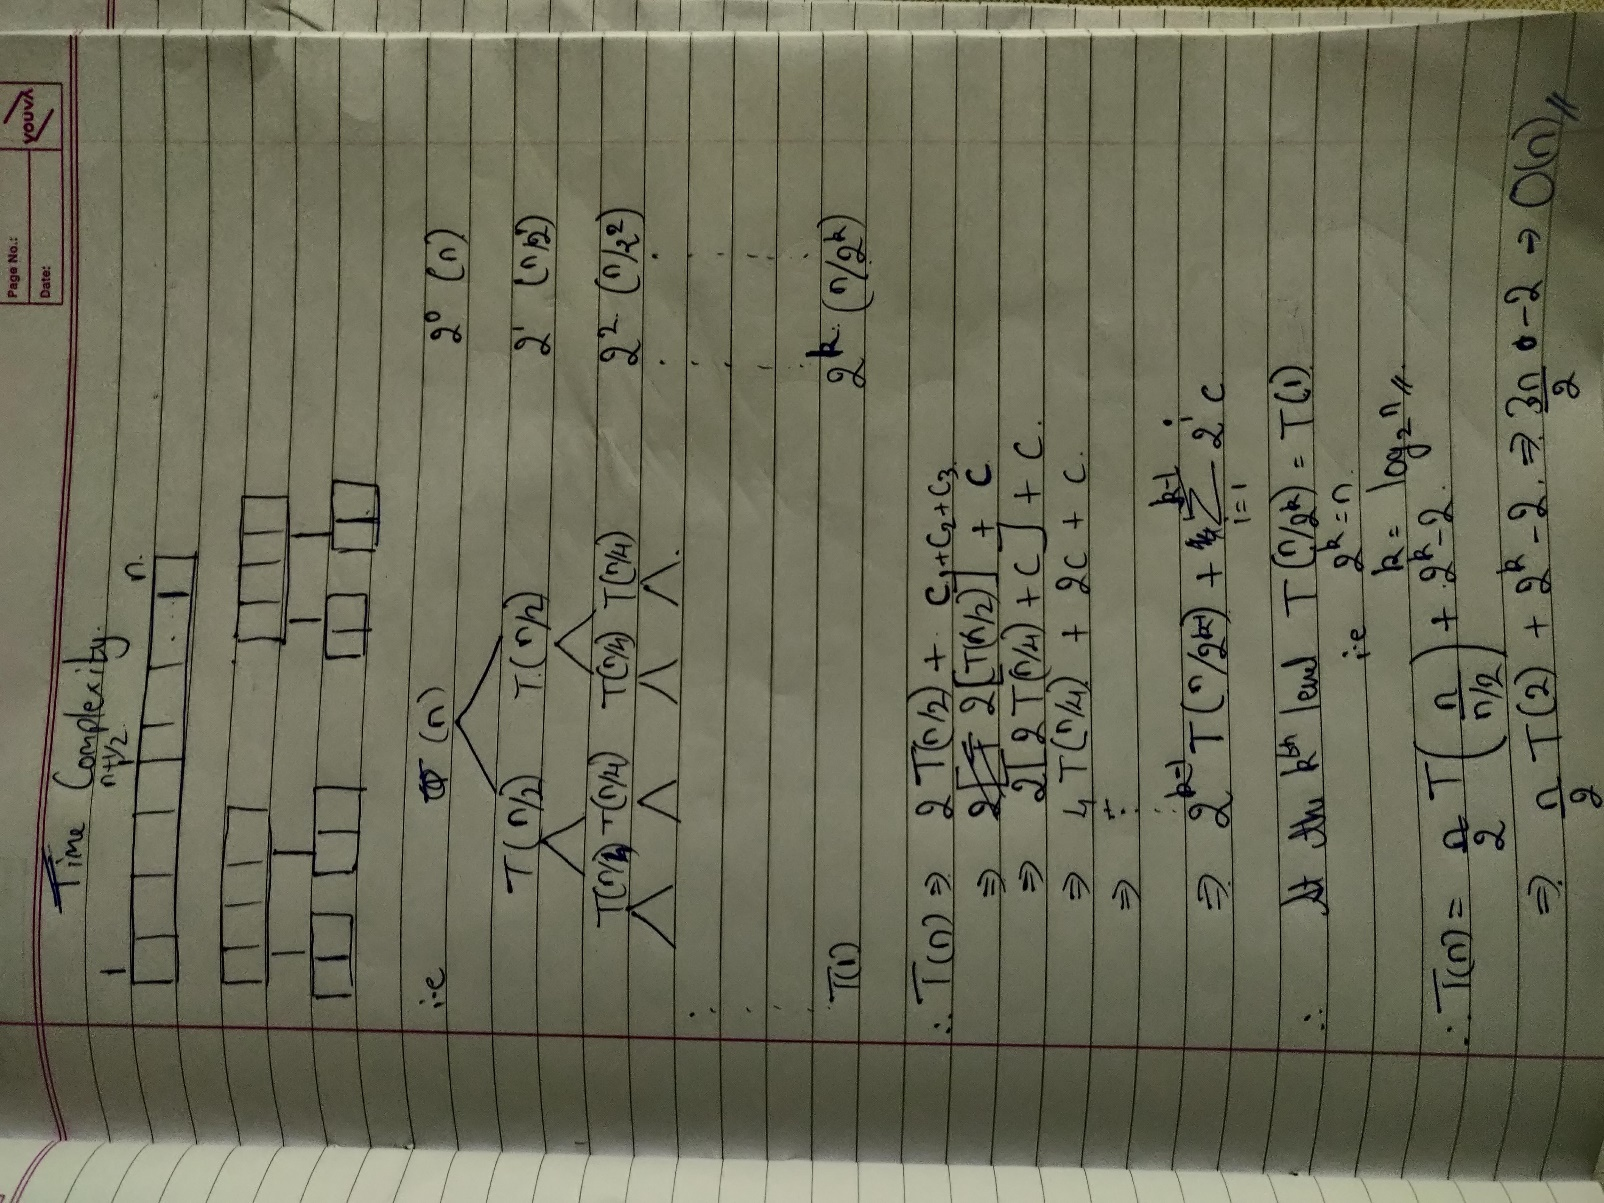 Page No.:
Date:
YOUVA
Time Complexity.
1 n+1/2 n.
i.e (n) 2⁰ (n)
T(n/2) T(n/2) 2¹ (n/2)
T(n/4) T(n/4) T(n/4) T(n/4) 2² (n/2²)
T(1) 2ᵏ (n/2ᵏ)
∴ T(n) ⇒ 2 T(n/2) + C₁+C₂+C₃
⇒ 2[T(n/2)] + C
⇒ 2[2T(n/4) + C] + C.
⇒ 4 T(n/4) + 2C + C.
⇒ :
⇒ 2ᵏ⁻¹ T(n/2ᵏ⁻¹) + Σ 2ⁱ C
k-1
i=1
∴ At the kᵗʰ level T(n/2ᵏ) = T(1)
i.e 2ᵏ = n.
k = log₂ⁿ //
∴ T(n) = n/2 T(n/(n/2)) + 2ᵏ-2.
⇒ n/2 T(2) + 2ᵏ-2. ⇒ 3n/2 -2 → O(n) //